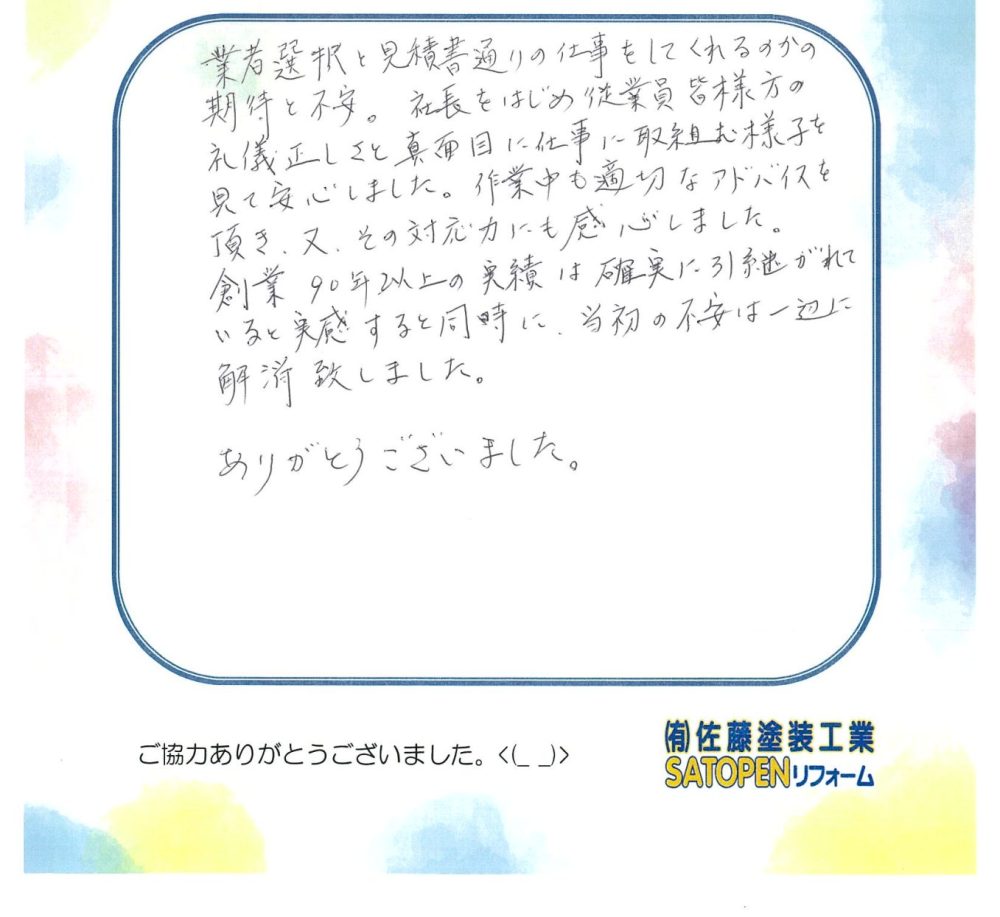 業者選択と見積書通りの仕事をしてくれるのかの
期待と不安。社長をはじめ従業員皆様方の
礼儀正しさと真面目に仕事に取組む様子を
見て安心しました。作業中も適切なアドバイスを
頂き、又、その対応力にも感心しました。
創業90年以上の実績は確実に引継がれて
いると実感すると同時に、当初の不安は一辺に
解消致しました。
ありがとうございました。
ご協力ありがとうございました。<(_ _)>
㈲佐藤塗装工業
SATOPENリフォーム